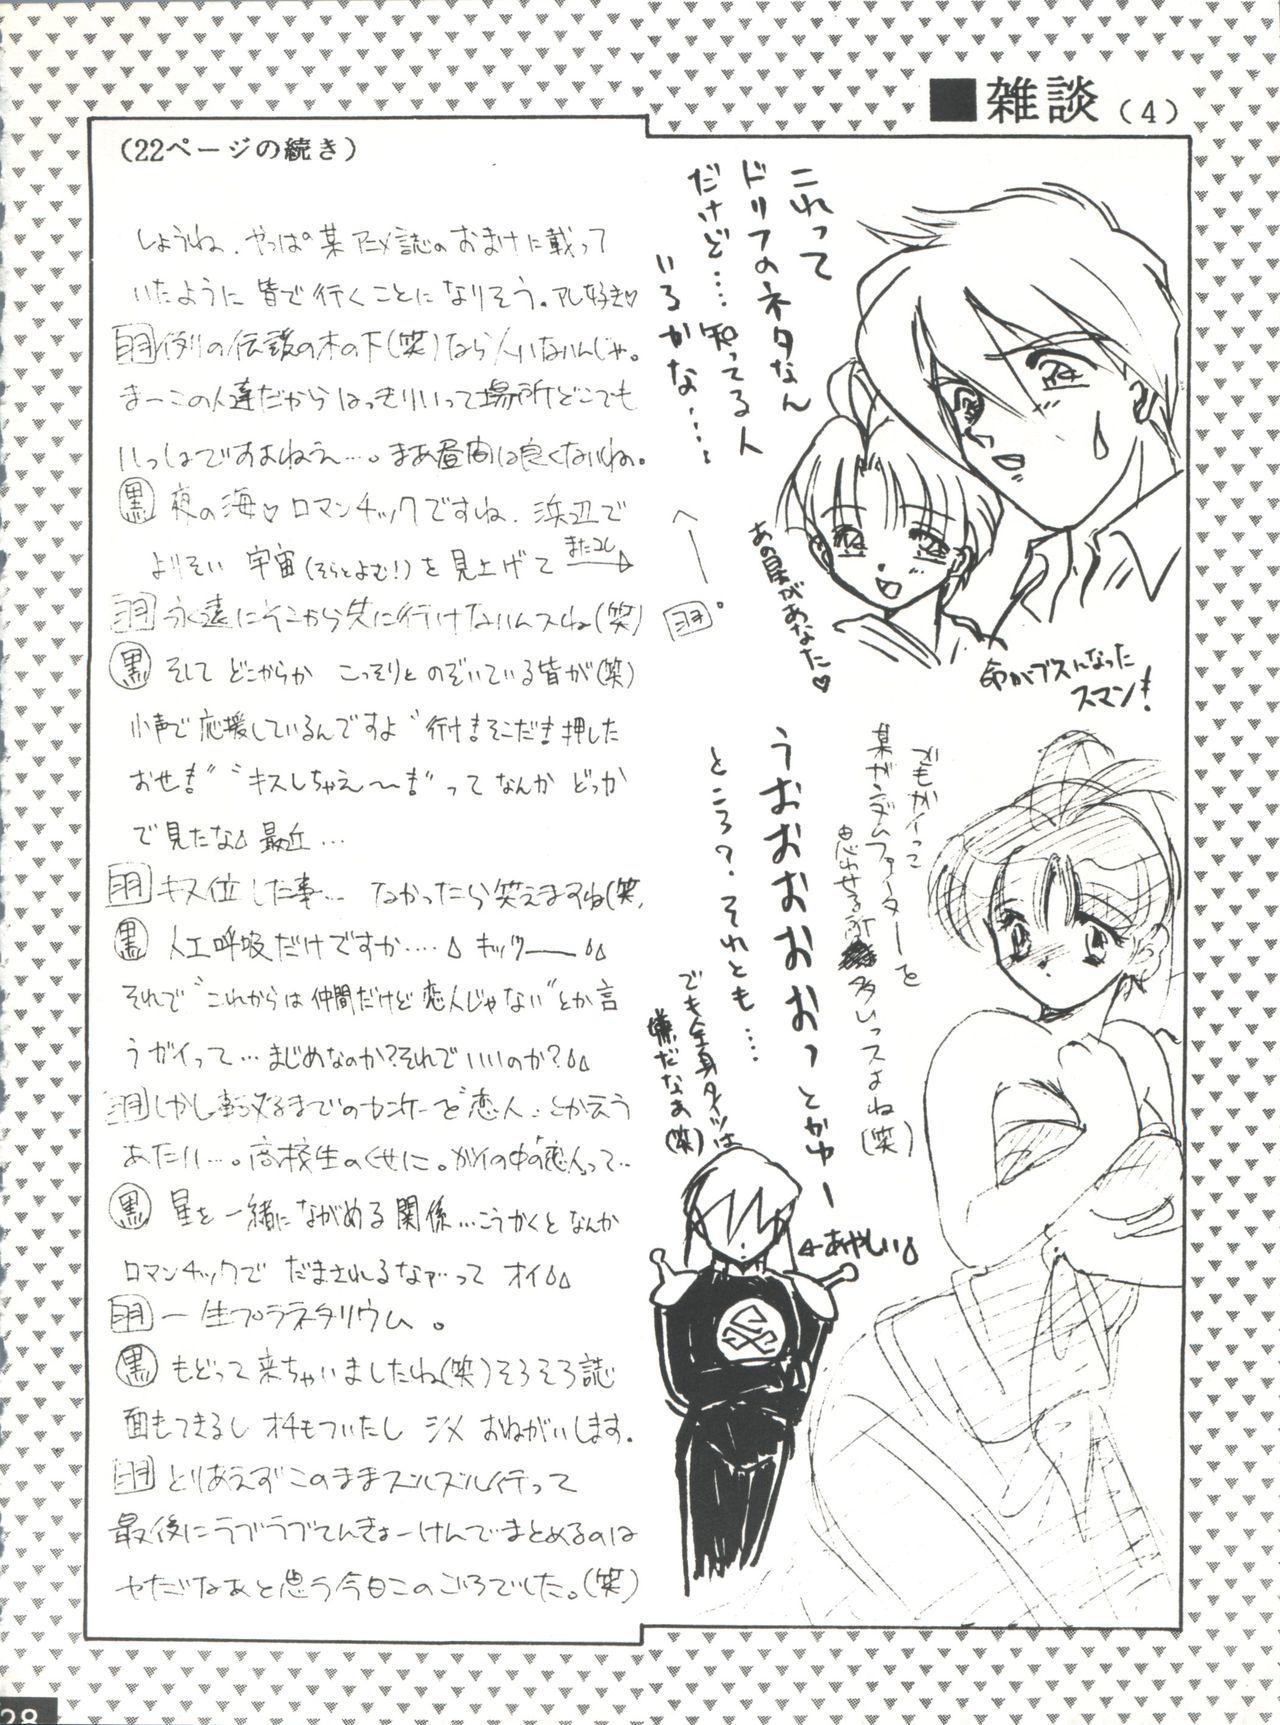 ■雑談(4)
(22ページの続き)
しょうね、やっぱ某アニメ誌のおまけに載って
いたように皆で行くことになりそう。アレ好き♡
羽 例の伝説の木の下(笑)なら人いないんじゃ。
まーこの人達だからはっきりいって場所どこでも
いっしょですよねえ…。まあ昼間は良くないね。
黒 夜の海♡ロマンチックですね、浜辺で
よりそい 宇宙(そらとよむ!)を見上げて またコレ→
羽 永遠にそこから先に行けないんスね(笑)
黒 そして どこからか こっそりと のぞいている皆が(笑)
小声で応援しているんですよ“行け!そこだ!押した
おせ!”“キスしちゃえ〜!”って なんか どっか
で見たな 最近…
羽 キス位した事… なかったら笑えますね(笑)
黒 人工呼吸だけですか…。 キッツー
それで“これからは仲間だけど恋人じゃない”とか言
うガイって… まじめなのか?それでいいのか?
羽 しかし 転校するまでのカンケーを“恋人”とか云う
あたり…。高校生のくせに。ガイの中の“恋人”って…
黒 星を一緒にながめる関係…こうかくと なんか
ロマンチックで だまされるなァ…って オイ
羽 一生プラネタリウム。
黒 もどって来ちゃいましたね(笑)そろそろ誌
面もつきるし オチもついたし シメ おねがいします。
羽 とりあえずこのままズルズル行って
最後にラブラブてんきょーけんでまとめるのは
ヤだなあと思う今日このごろでした。(笑)
これって
ドリフのネタなん
だけど…知ってる人
いるかな……
へ——
羽。
あの星があなた♡
命がブスんなった
スマン!
でもガイって
某ガンダムファイターを
思わせる所
多いっスよね(笑)
うおおおおおっとかゆー
ところ?それとも…
でも全身タイツは
嫌だなぁ(笑)
←あやしい
28